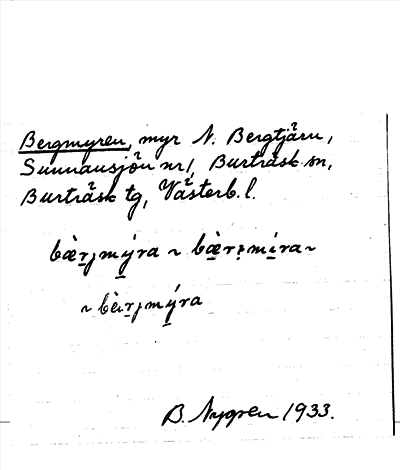 Bergmyren, myr N. Bergtjärn,
Sunnansjön nr 1, Burträsk sn,
Burträsk tg, Västerb. l.
bæ̀r̠jmý̠ra ~ bæ̠̀rjmí̠ra ~
~ bàɩr̠jmý̠ra
B. Nygren 1933.